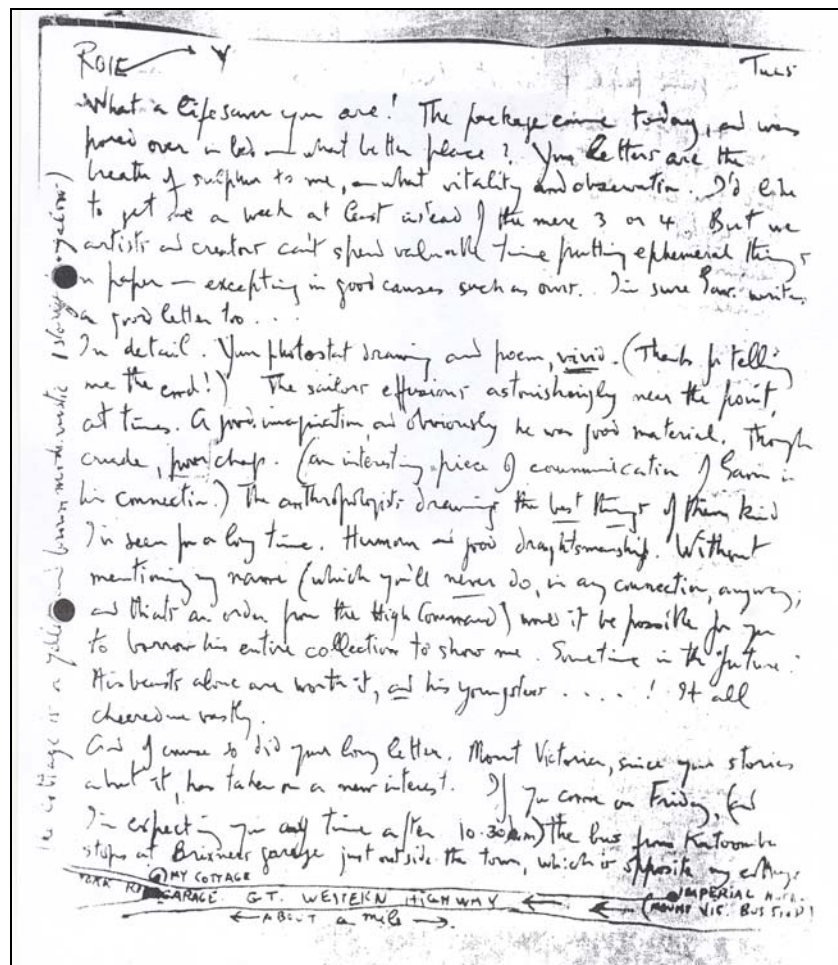 ROIE Y Tues
What a lifesaver you are! The package came today, and was
pored over in bed — what better place? Your letters are the
breath of sulphur to me, — what vitality and observation. I'd like
to get one a week at least instead of the mere 3 or 4. But we
artists and creators can't spend valuable time putting ephemeral things
on paper — excepting in good causes such as ours. I'm sure writes
a good letter too...
In detail. Your photostat drawing and poem, vivid. (Thanks for telling
me the end!) The sailors effusions astonishingly near the point,
at times. A good imagination, and obviously he was good material, though
crude, poor chap. (an interesting piece of communication of in
his connection.) The anthropologists drawings the best things of their kind
I've seen for a long time. Humour and good draughtsmanship. Without
mentioning my name (which you'll never do, in any connection, anyway;
and that's an order from the High Command) would it be possible for you
to borrow his entire collection to show me. Sometime in the future.
His beasts alone are worth it, and his youngsters . . . . ! It all
cheered me vastly.
And of course so did your long letter. Mount Victoria, since your stories
about it, has taken on a new interest. If you come on Friday, (and
I'm expecting you any time after 10.30 am) the bus from Katoomba
stops at garage just outside the town, which is opposite my cottage
MY COTTAGE IMPERIAL
GARAGE. GT. WESTERN HIGHWAY (MOUNT VIC. BUS STOP)
← ABOUT a mile →
The cottage is a and brown modernistic